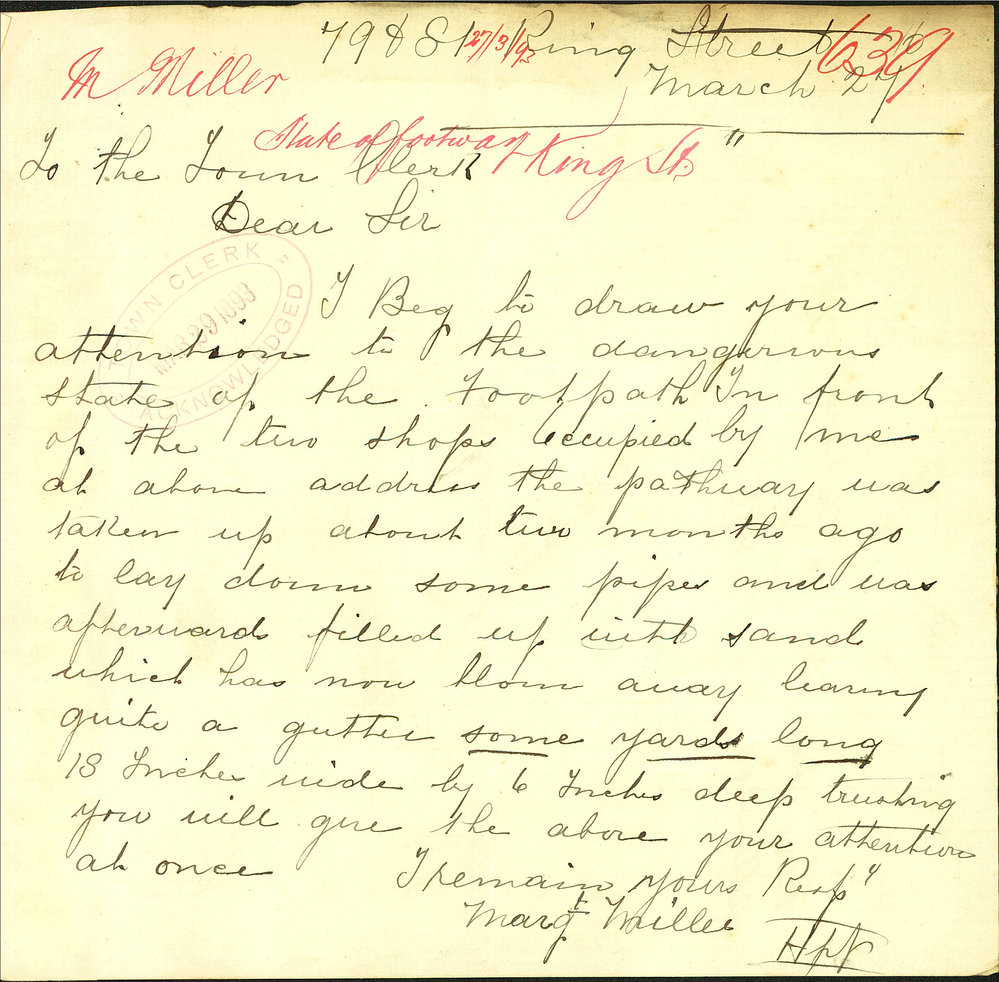 79 & 81 King Street
27/3/93
639
March 27
M Miller
State of footway King St.
To the Town Clerk
Dear Sir
TOWN CLERK
MAR 29 1893
ACKNOWLEDGED
I Beg to draw your
attention to the dangerous
state of the Footpath In front
of the two shops occupied by me
at above address the pathway was
taken up about two months ago
to lay down some pipes and was
afterward filled up with sand
which has now blown away leaving
quite a gutter some yards long
18 Inches wide by 6 Inches deep trusting
you will give the above your attention
at once
I remain yours Resp"
Margt Miller